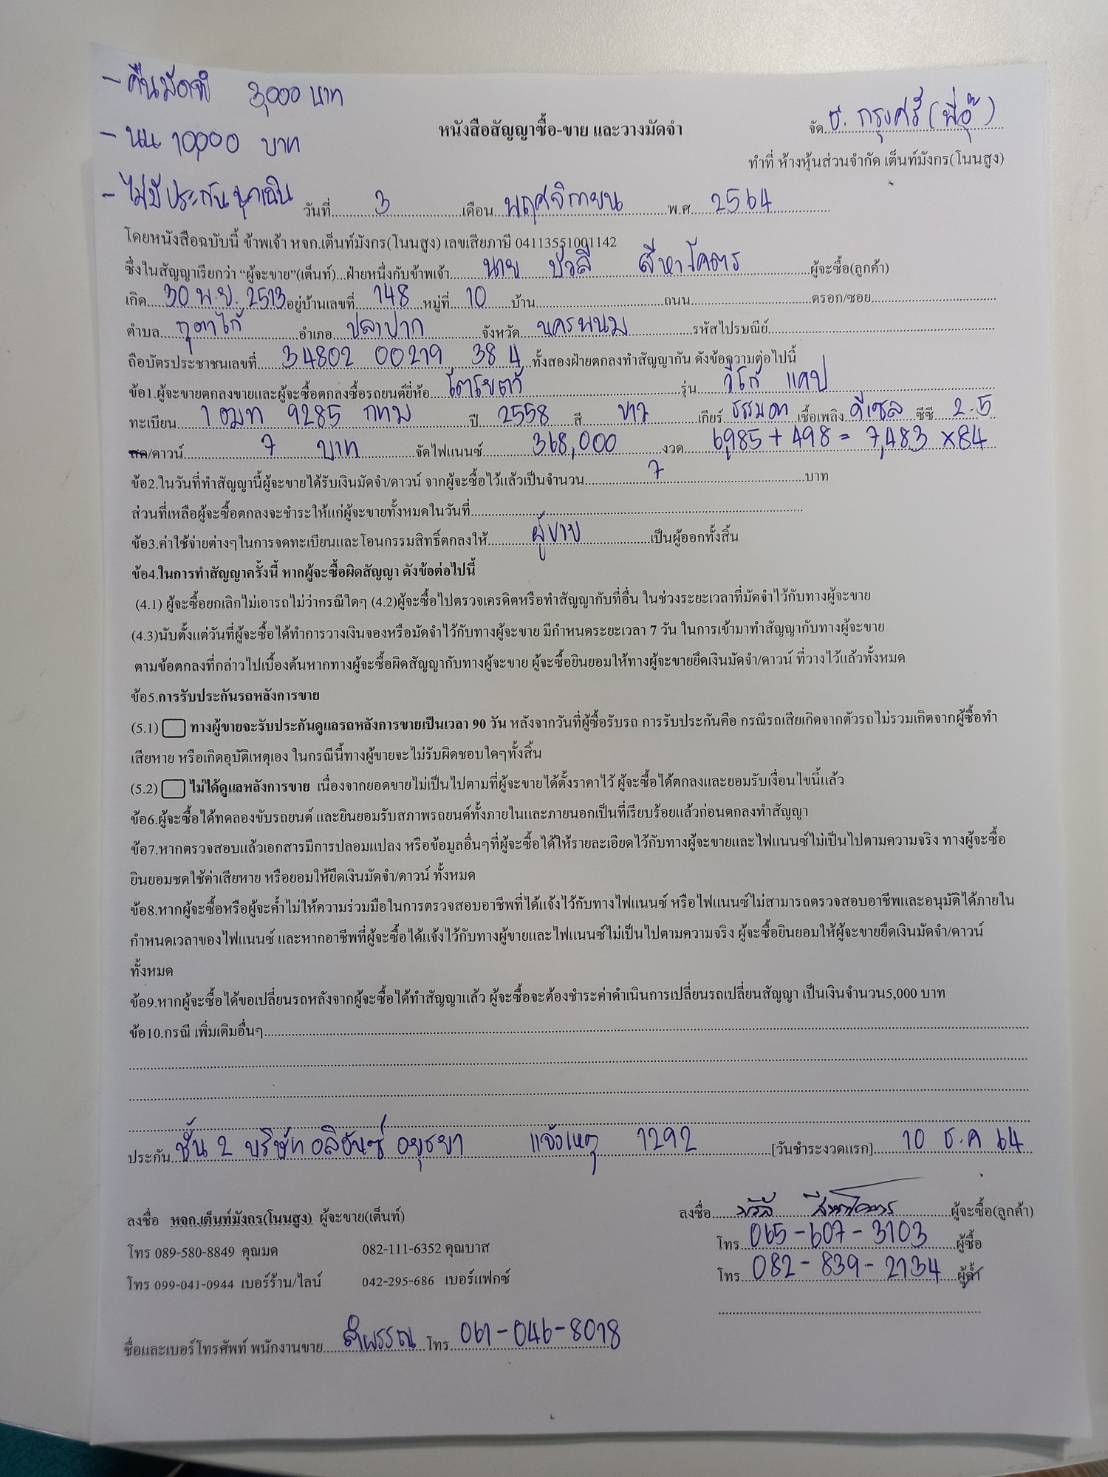 - คืนมัดจำ 3,000 บาท
- นน 10,000 บาท
- ไม่มีประกันฉุกเฉิน
จัด ธ. กรุงศรี (พี่อุ๊)
หนังสือสัญญาซื้อ-ขาย และวางมัดจำ
ทำที่ ห้างหุ้นส่วนจำกัด เต็นท์มังกร(โนนสูง)
วันที่ 3 เดือน พฤศจิกายน พ.ศ. 2564
โดยหนังสือฉบับนี้ ข้าพเจ้า หจก.เต็นท์มังกร(โนนสูง) เลขเสียภาษี 04113551001142
ซึ่งในสัญญาเรียกว่า “ผู้จะขาย”(เต็นท์)...ฝ่ายหนึ่งกับข้าพเจ้า นาย บัวลี สีหาโคตร ผู้จะซื้อ(ลูกค้า)
เกิด 30 พ.ย. 2513 อยู่บ้านเลขที่ 148 หมู่ที่ 10 บ้าน ถนน ตรอก/ซอย
ตำบล กุตาไก้ อำเภอ ปลาปาก จังหวัด นครพนม รหัสไปรษณีย์
ถือบัตรประชาชนเลขที่ 34802 00219 38 4 ทั้งสองฝ่ายตกลงทำสัญญากัน ดังข้อความต่อไปนี้
ข้อ1.ผู้จะขายตกลงขายและผู้จะซื้อตกลงซื้อรถยนต์ยี่ห้อ โตโยตว้ รุ่น วีโก้ แคป
ทะเบียน 1 ฒท 9285 กทม ปี 2558 สี ขาว เกียร์ ธรรมดา เชื้อเพลิง ดีเซล ซีซี 2.5
สด/ดาวน์ 7 บาท จัดไฟแนนซ์ 368,000 งวด 6985 + 498 = 7,483 x 84
ข้อ2.ในวันที่ทำสัญญานี้ผู้จะขายได้รับเงินมัดจำ/ดาวน์ จากผู้จะซื้อไว้แล้วเป็นจำนวน 7 บาท
ส่วนที่เหลือผู้จะซื้อตกลงจะชำระให้แก่ผู้จะขายทั้งหมดในวันที่
ข้อ3.ค่าใช้จ่ายต่างๆในการจดทะเบียนและโอนกรรมสิทธิ์ตกลงให้ ผู้ขาย เป็นผู้ออกทั้งสิ้น
ข้อ4.ในการทำสัญญาครั้งนี้ หากผู้จะซื้อผิดสัญญา ดังข้อต่อไปนี้
(4.1) ผู้จะซื้อยกเลิกไม่เอารถไม่ว่ากรณีใดๆ (4.2)ผู้จะซื้อไปตรวจเครดิตหรือทำสัญญากับที่อื่น ในช่วงระยะเวลาที่มัดจำไว้กับทางผู้จะขาย
(4.3)นับตั้งแต่วันที่ผู้จะซื้อได้ทำการวางเงินจองหรือมัดจำไว้กับทางผู้จะขาย มีกำหนดระยะเวลา 7 วัน ในการเข้ามาทำสัญญากับทางผู้จะขาย
ตามข้อตกลงที่กล่าวไปเบื้องต้นหากทางผู้จะซื้อผิดสัญญากับทางผู้จะขาย ผู้จะซื้อยินยอมให้ทางผู้จะขายยึดเงินมัดจำ/ดาวน์ ที่วางไว้แล้วทั้งหมด
ข้อ5.การรับประกันรถหลังการขาย
(5.1) ทางผู้ขายจะรับประกันดูแลรถหลังการขายเป็นเวลา 90 วัน หลังจากวันที่ผู้ซื้อรับรถ การรับประกันคือ กรณีรถเสียเกิดจากตัวรถไม่รวมเกิดจากผู้ซื้อทำ
เสียหาย หรือเกิดอุบัติเหตุเอง ในกรณีนี้ทางผู้ขายจะไม่รับผิดชอบใดๆทั้งสิ้น
(5.2) ไม่ได้ดูแลหลังการขาย เนื่องจากยอดขายไม่เป็นไปตามที่ผู้จะขายได้ตั้งราคาไว้ ผู้จะซื้อได้ตกลงและยอมรับเงื่อนไขนี้แล้ว
ข้อ6.ผู้จะซื้อได้ทดลองขับรถยนต์ และยินยอมรับสภาพรถยนต์ทั้งภายในและภายนอกเป็นที่เรียบร้อยแล้วก่อนตกลงทำสัญญา
ข้อ7.หากตรวจสอบแล้วเอกสารมีการปลอมแปลง หรือข้อมูลอื่นๆที่ผู้จะซื้อได้ให้รายละเอียดไว้กับทางผู้จะขายและไฟแนนซ์ไม่เป็นไปตามความจริง ทางผู้จะซื้อ
ยินยอมชดใช้ค่าเสียหาย หรือยอมให้ยึดเงินมัดจำ/ดาวน์ ทั้งหมด
ข้อ8.หากผู้จะซื้อหรือผู้จะค้ำไม่ให้ความร่วมมือในการตรวจสอบอาชีพที่ได้แจ้งไว้กับทางไฟแนนซ์ หรือไฟแนนซ์ไม่สามารถตรวจสอบอาชีพและอนุมัติได้ภายใน
กำหนดเวลาของไฟแนนซ์ และหากอาชีพที่ผู้จะซื้อได้แจ้งไว้กับทางผู้ขายและไฟแนนซ์ไม่เป็นไปตามความจริง ผู้จะซื้อยินยอมให้ผู้จะขายยึดเงินมัดจำ/ดาวน์
ทั้งหมด
ข้อ9.หากผู้จะซื้อได้ขอเปลี่ยนรถหลังจากผู้จะซื้อได้ทำสัญญาแล้ว ผู้จะซื้อจะต้องชำระค่าดำเนินการเปลี่ยนรถเปลี่ยนสัญญา เป็นเงินจำนวน5,000 บาท
ข้อ10.กรณี เพิ่มเติมอื่นๆ
ประกัน ชั้น 2 บริษัท อลิอันซ์ อยุธยา แจ้งเหตุ 1292 [วันชำระงวดแรก] 10 ธ.ค 64
ลงชื่อ หจก.เต็นท์มังกร(โนนสูง) ผู้จะขาย(เต็นท์)
ลงชื่อ บัวลี สีหาโคตร ผู้จะซื้อ(ลูกค้า)
โทร 089-580-8849 คุณมด 082-111-6352 คุณบาส
โทร 065-607-3103 ผู้ซื้อ
โทร 099-041-0944 เบอร์ร้าน/ไลน์ 042-295-686 เบอร์แฟกซ์
โทร 082-839-2134 ผู้ค้ำ
ชื่อและเบอร์โทรศัพท์ พนักงานขาย ลำพรรณ โทร 061-046-8018